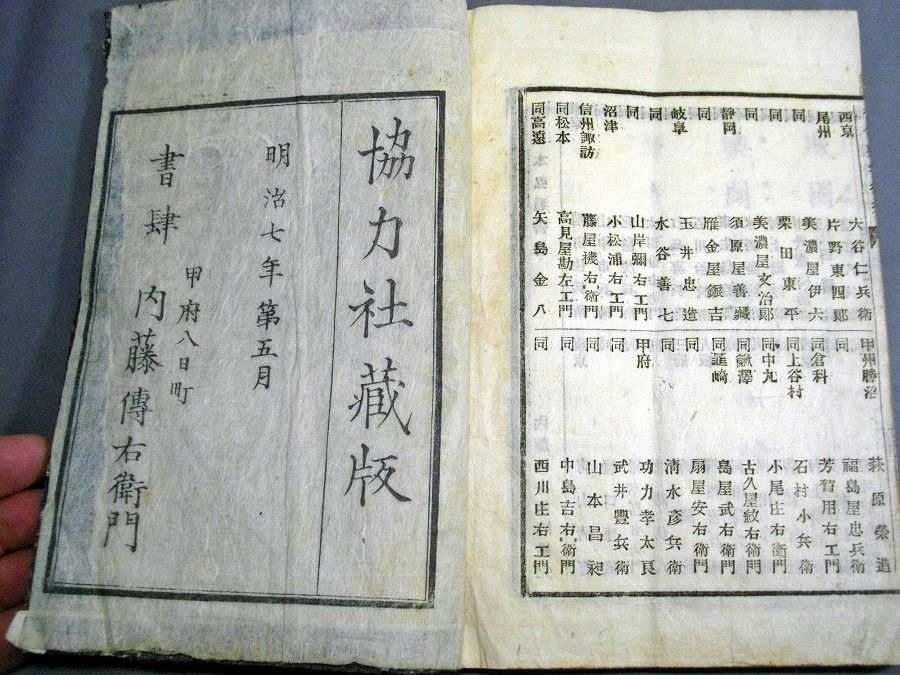 西京 大谷仁兵衛 甲州勝沼 萩原榮造
尾州 片野東四郞 同 福島屋忠兵衛
同 美濃屋伊六 同倉科 芳賀用右工門
同 栗田東平 同上谷村 石村小兵衛
同 美濃屋文治郞 同中丸 小尾庄右衞門
靜岡 須原屋善藏 同鰍澤 古久屋紋右衞門
同 雁金屋銀吉 同韮崎 島屋武右衞門
岐阜 玉井忠造 同 扇屋安右衞門
同 水谷善七 同 淸水彥兵衛
同 山岸彌右工門 甲府 功力孝太良
沼津 小松浦右工門 同 武井豐兵衛
信州諏訪 藤屋機右衞門 同 山本昌昶
同松本 高見屋勘左工門 同 中島吉右衞門
同高遠 矢島金八 同 西川庄右工門
協力社藏版
明治七年第五月
甲府八日町
書肆 内藤傳右衛門